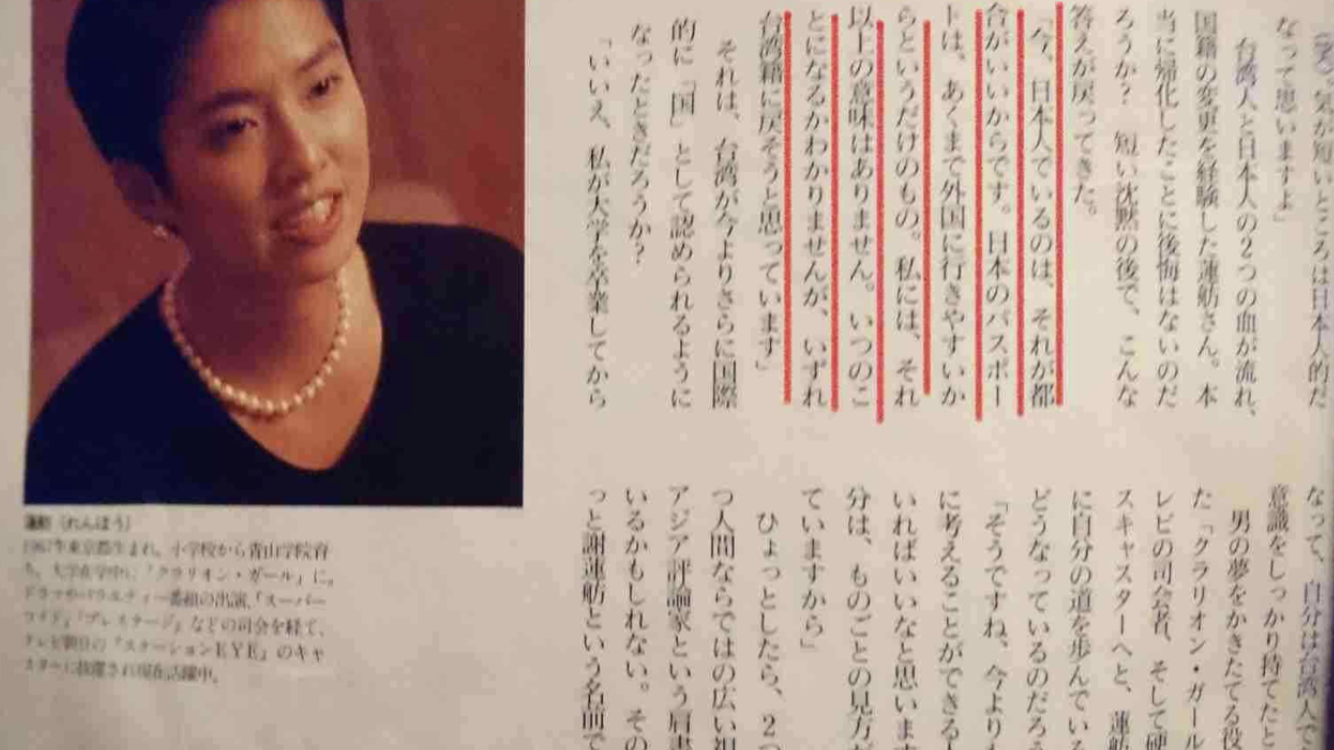 (笑)気が短いところは日本人的だ
なって思いますよ」
台湾人と日本人の2つの血が流れ、
国籍の変更を経験した蓮舫さん。本
当に帰化したことに後悔はないのだ
ろうか? 短い沈黙の後で、こんな
答えが戻ってきた。
「今、日本人でいるのは、それが都
合がいいからです。日本のパスポー
トは、あくまで外国に行きやすいか
らというだけのもの。私には、それ
以上の意味はありません。いつのこ
とになるかわかりませんが、いずれ
台湾籍に戻そうと思っています」
それは、台湾が今よりさらに国際
的に「国」として認められるように
なったときだろうか?
「いいえ、私が大学を卒業してから
なって、自分は台湾人で
意識をしっかり持てたと
男の夢をかきたてる役
た「クラリオン・ガール
レビの司会者、そして硬
スキャスターへと、蓮舫
に自分の道を歩んでいる
どうなっているのだろう
「そうですね、今よりも
に考えることができる
いればいいなと思います
分は、ものごとの見方が
ていますから」
ひょっとしたら、2つ
つ人間ならではの広い視
アジア評論家という肩書
いるかもしれない。その
っと謝蓮舫という名前で
蓮舫(れんほう)
1967年東京都生まれ。小学校から青山学院育
ち。大学在学中に「クラリオン・ガール」に。
ドラマやバラエティー番組の出演、「スーパー
ワイド」「プレステージ」などの司会を経て、
テレビ朝日の「ステーションEYE」のキャ
スターに抜擢され現在活躍中。